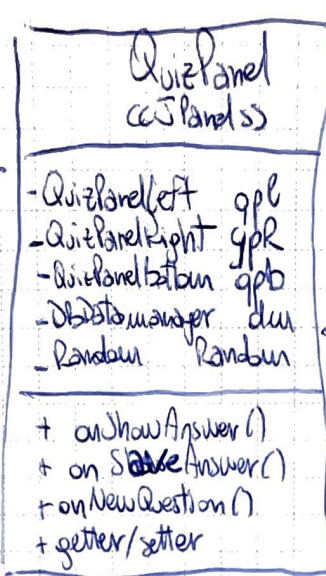 QuizPanel
<<JPanel>>
- QuizPanelLeft qpl
- QuizPanelRight qpR
- QuizPanelbottom qpb
- DbDatamanager dm
- Random Random
+ onShowAnswer()
+ on SaveAnswer()
+ onNewQuestion()
+ getter/setter